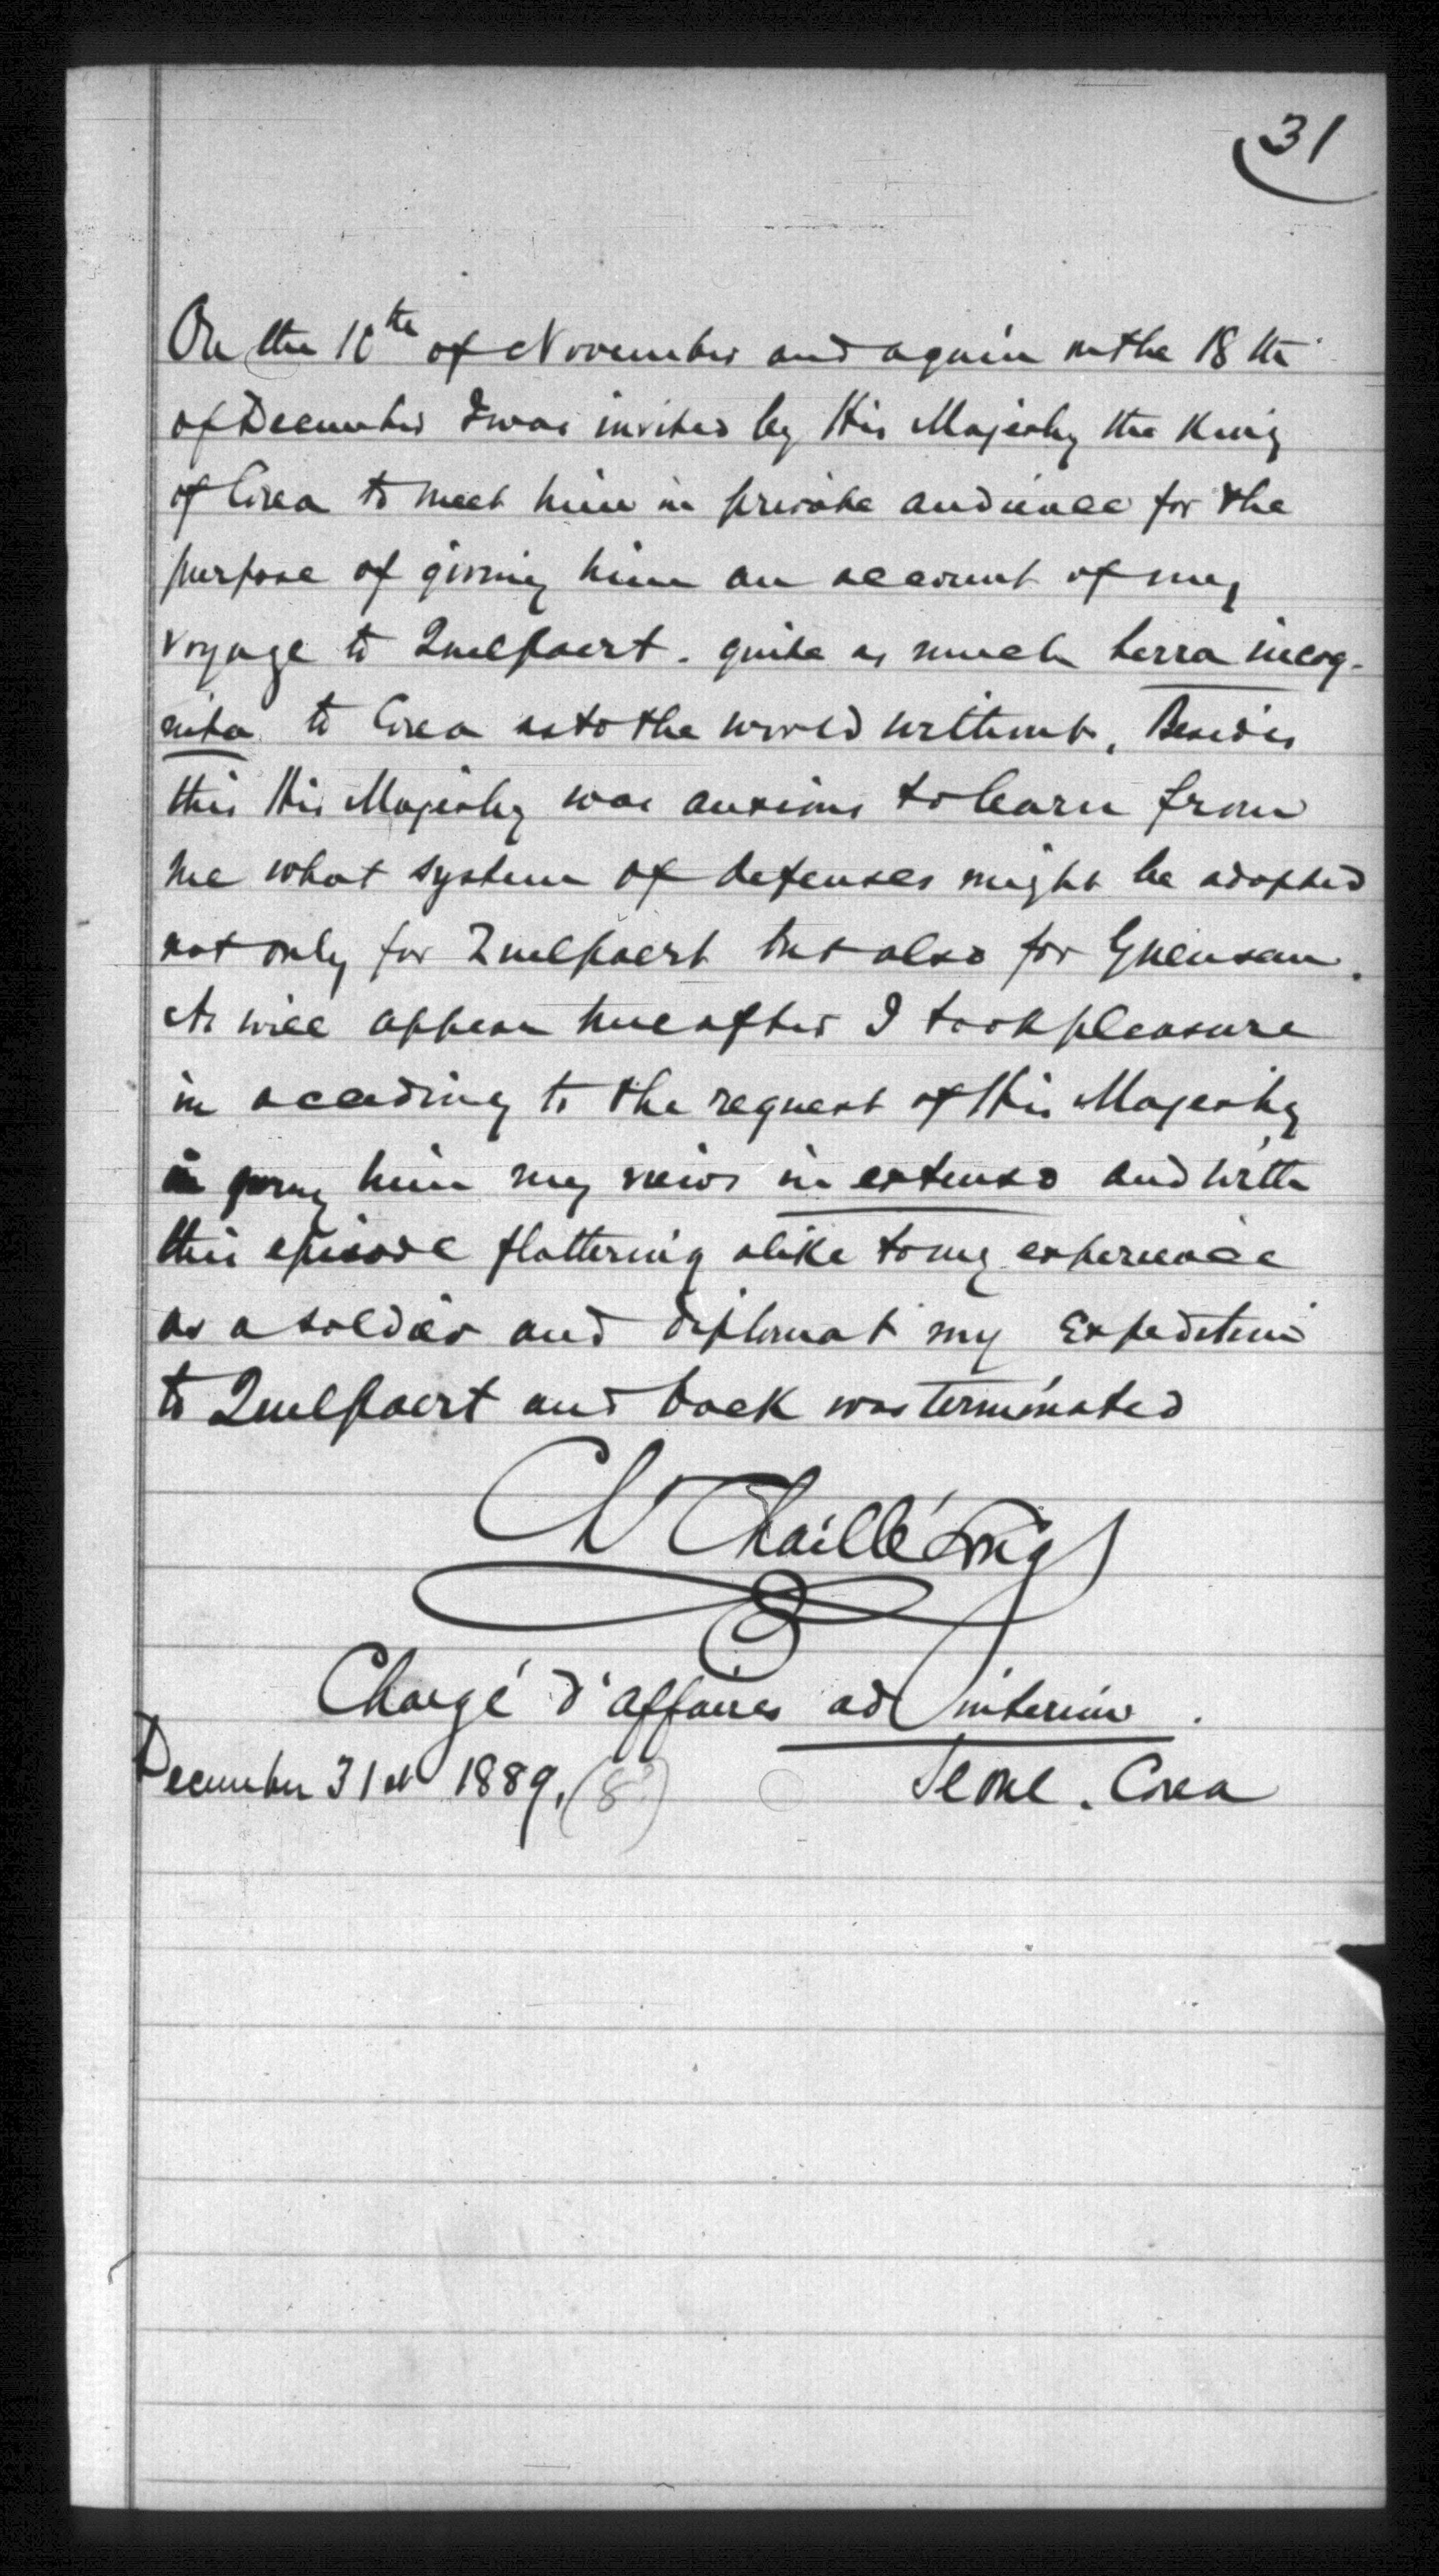 31
On the 10th of November and again on the 18th
of December I was invited by His Majesty the King
of Corea to meet him in private audience for the
purpose of giving him an account of my
voyage to Quelpaert. quite as much terra incog-
nita to Corea as to the world without. Besides
this His Majesty was anxious to learn from
me what system of defenses might be adopted
not only for Quelpaert but also for Guensan.
As will appear hereafter I took pleasure
in acceding to the request of His Majesty
in giving him my views in extenso and with
this episode flattering alike to my experience
as a soldier and diplomat my Expedition
to Quelpaert and back was terminated
Ch Chaillé Long
Chargé d'affaires ad interim.
December 31st 1889. (8?)
Seoul. Corea